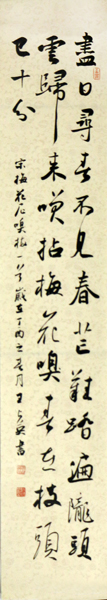 盡日尋春不見春芒鞋踏遍隴頭
雲歸來嘆拈梅花嗅春在枝頭
已十分
宋梅花尼嗅梅一首歲在丁丑春月